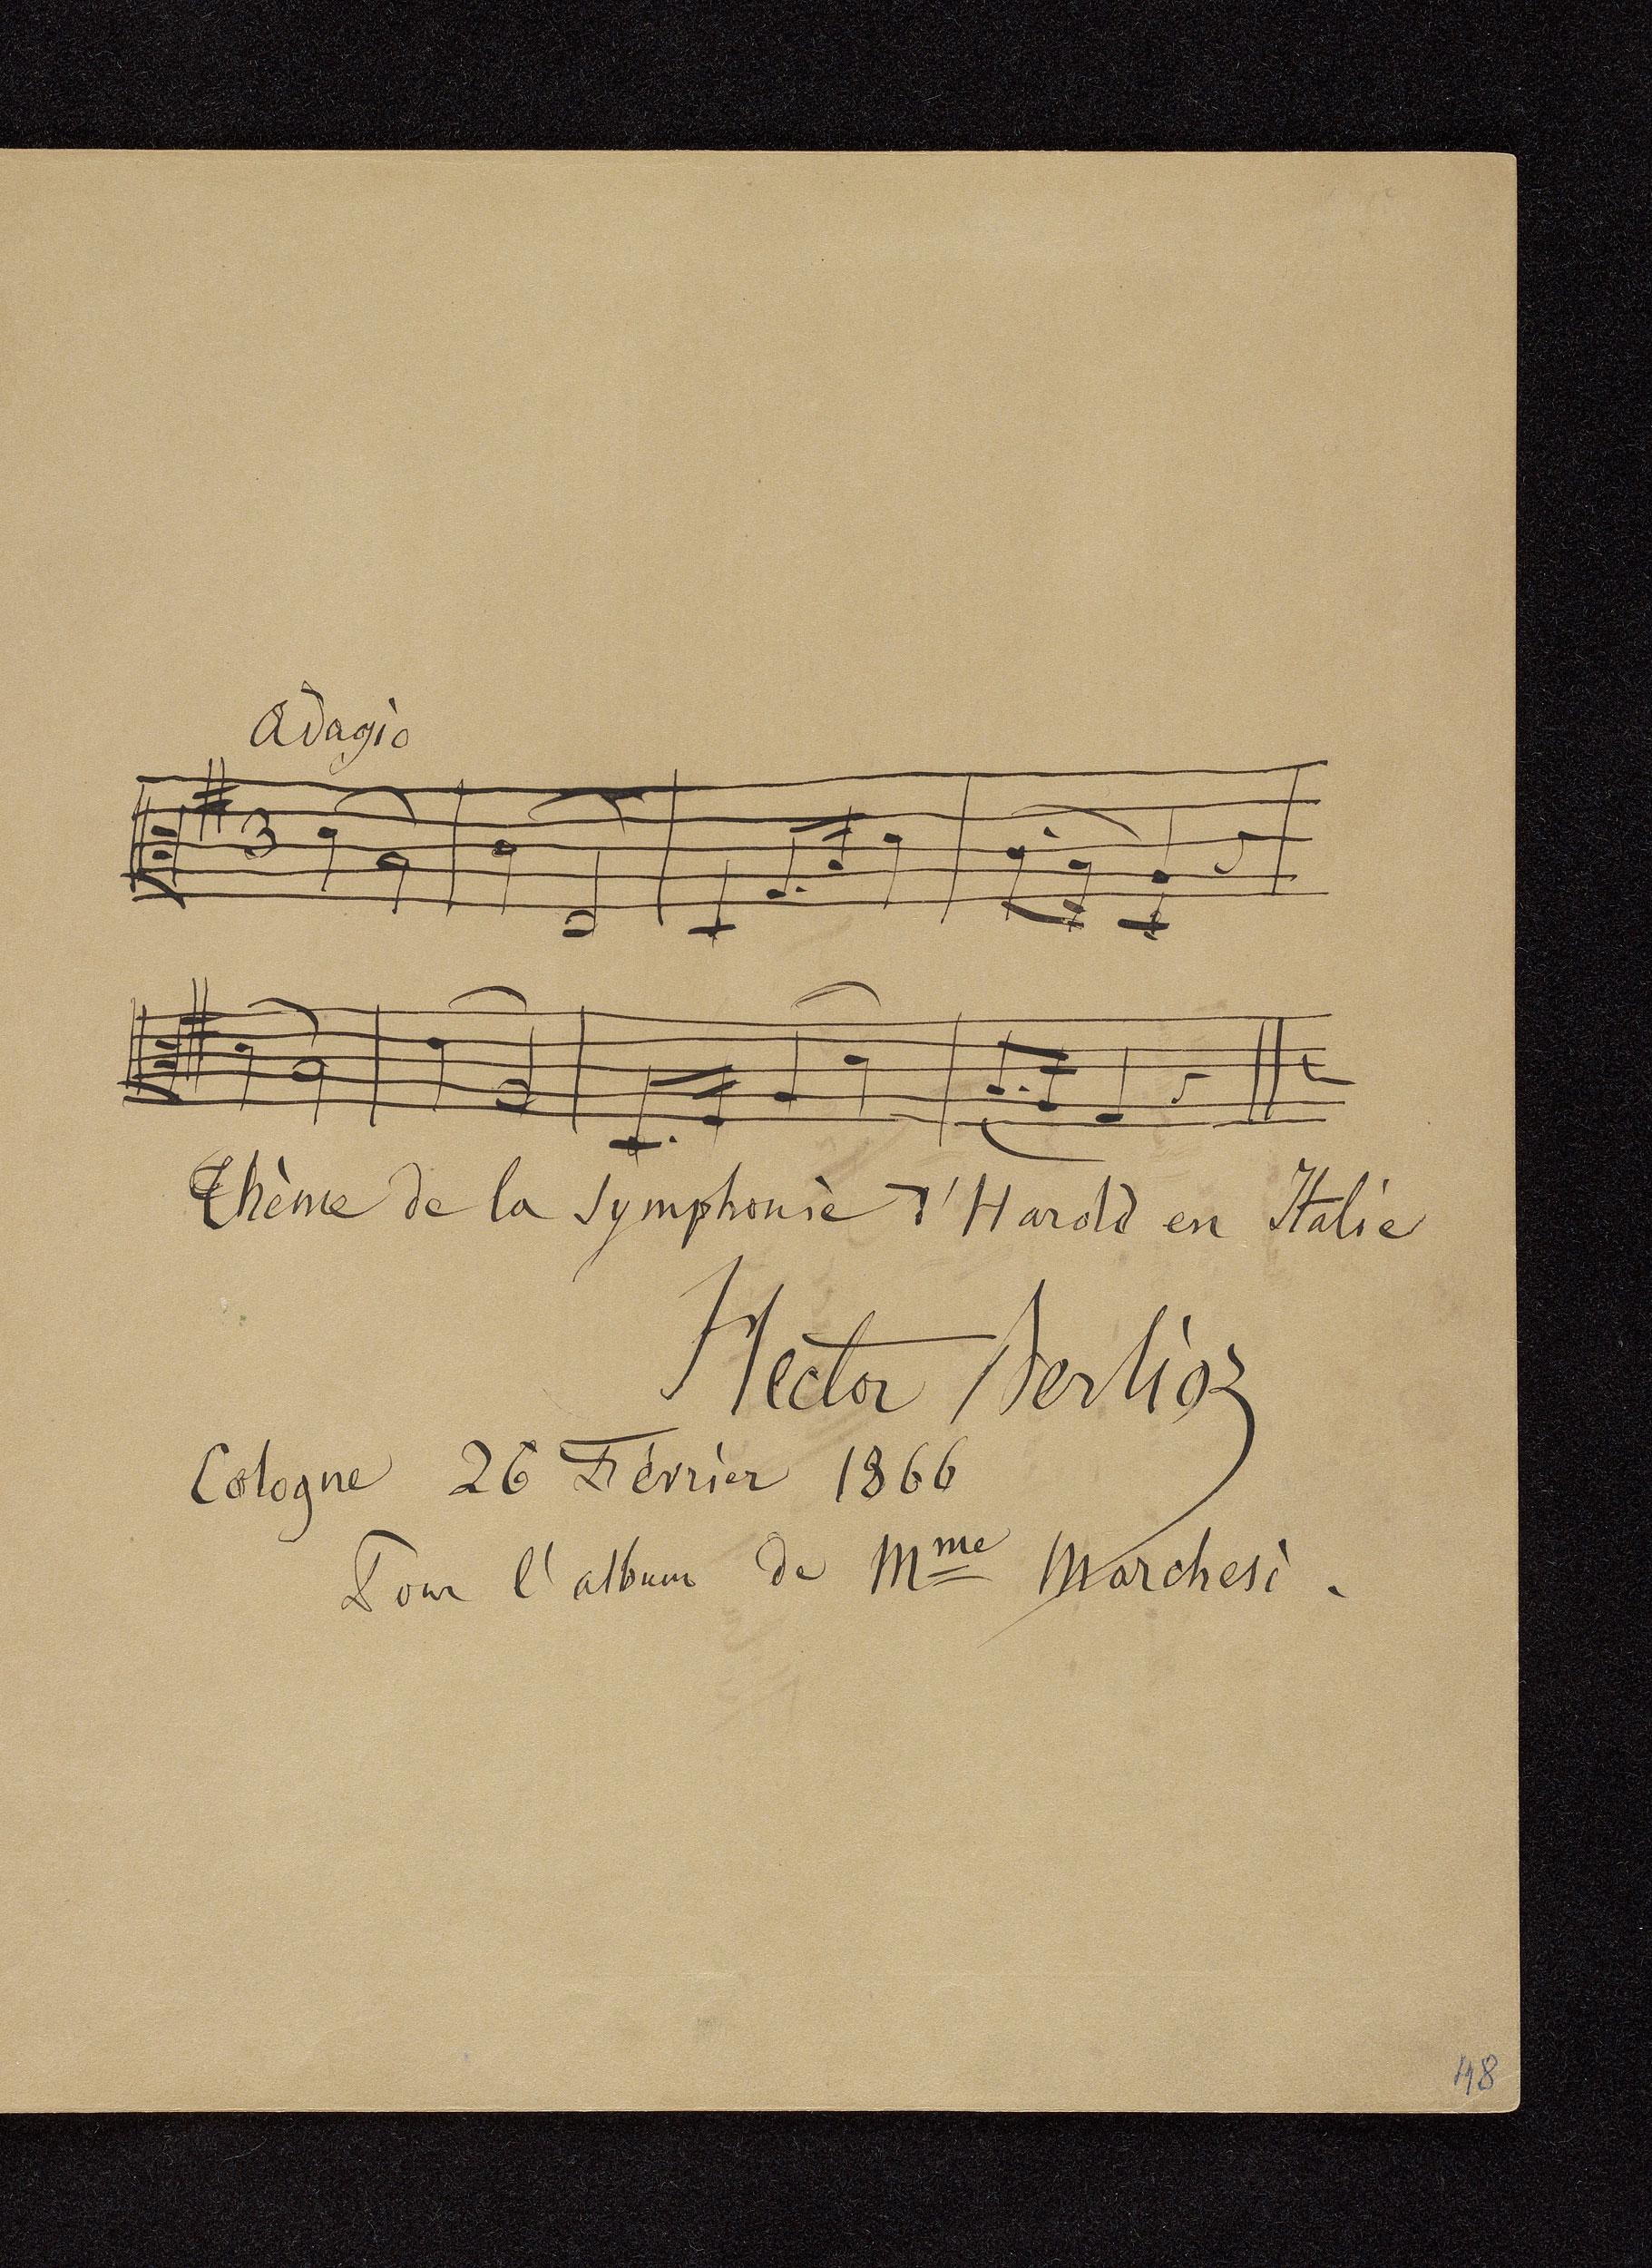 Adagio
3
Thème de la Symphonie d'Harold en Italie
Hector Berlioz
Cologne 26 Février 1866
Pour l'album de Mme Marchesi.
48